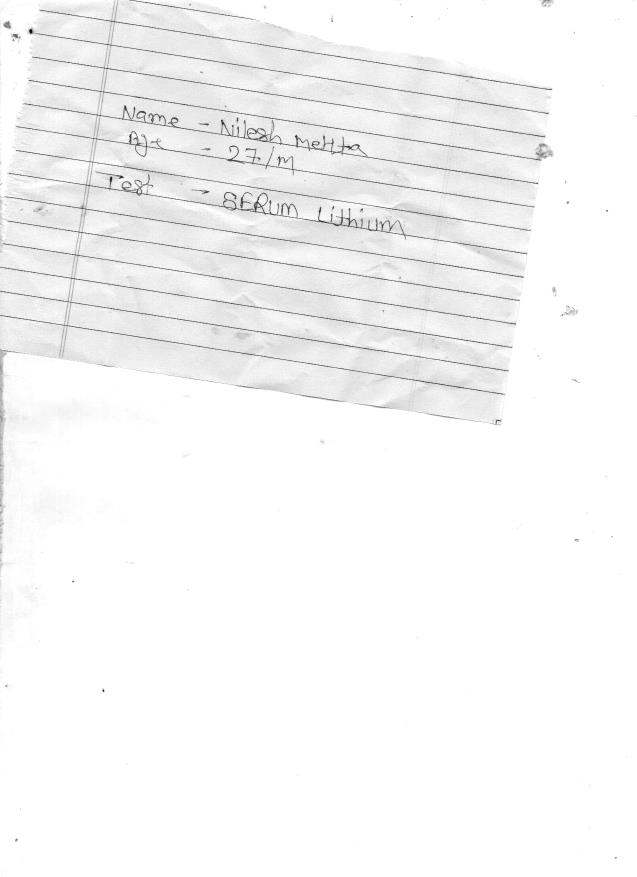 Name - Nilesh Mehta
Age - 27/M
Test - SERUM Lithium